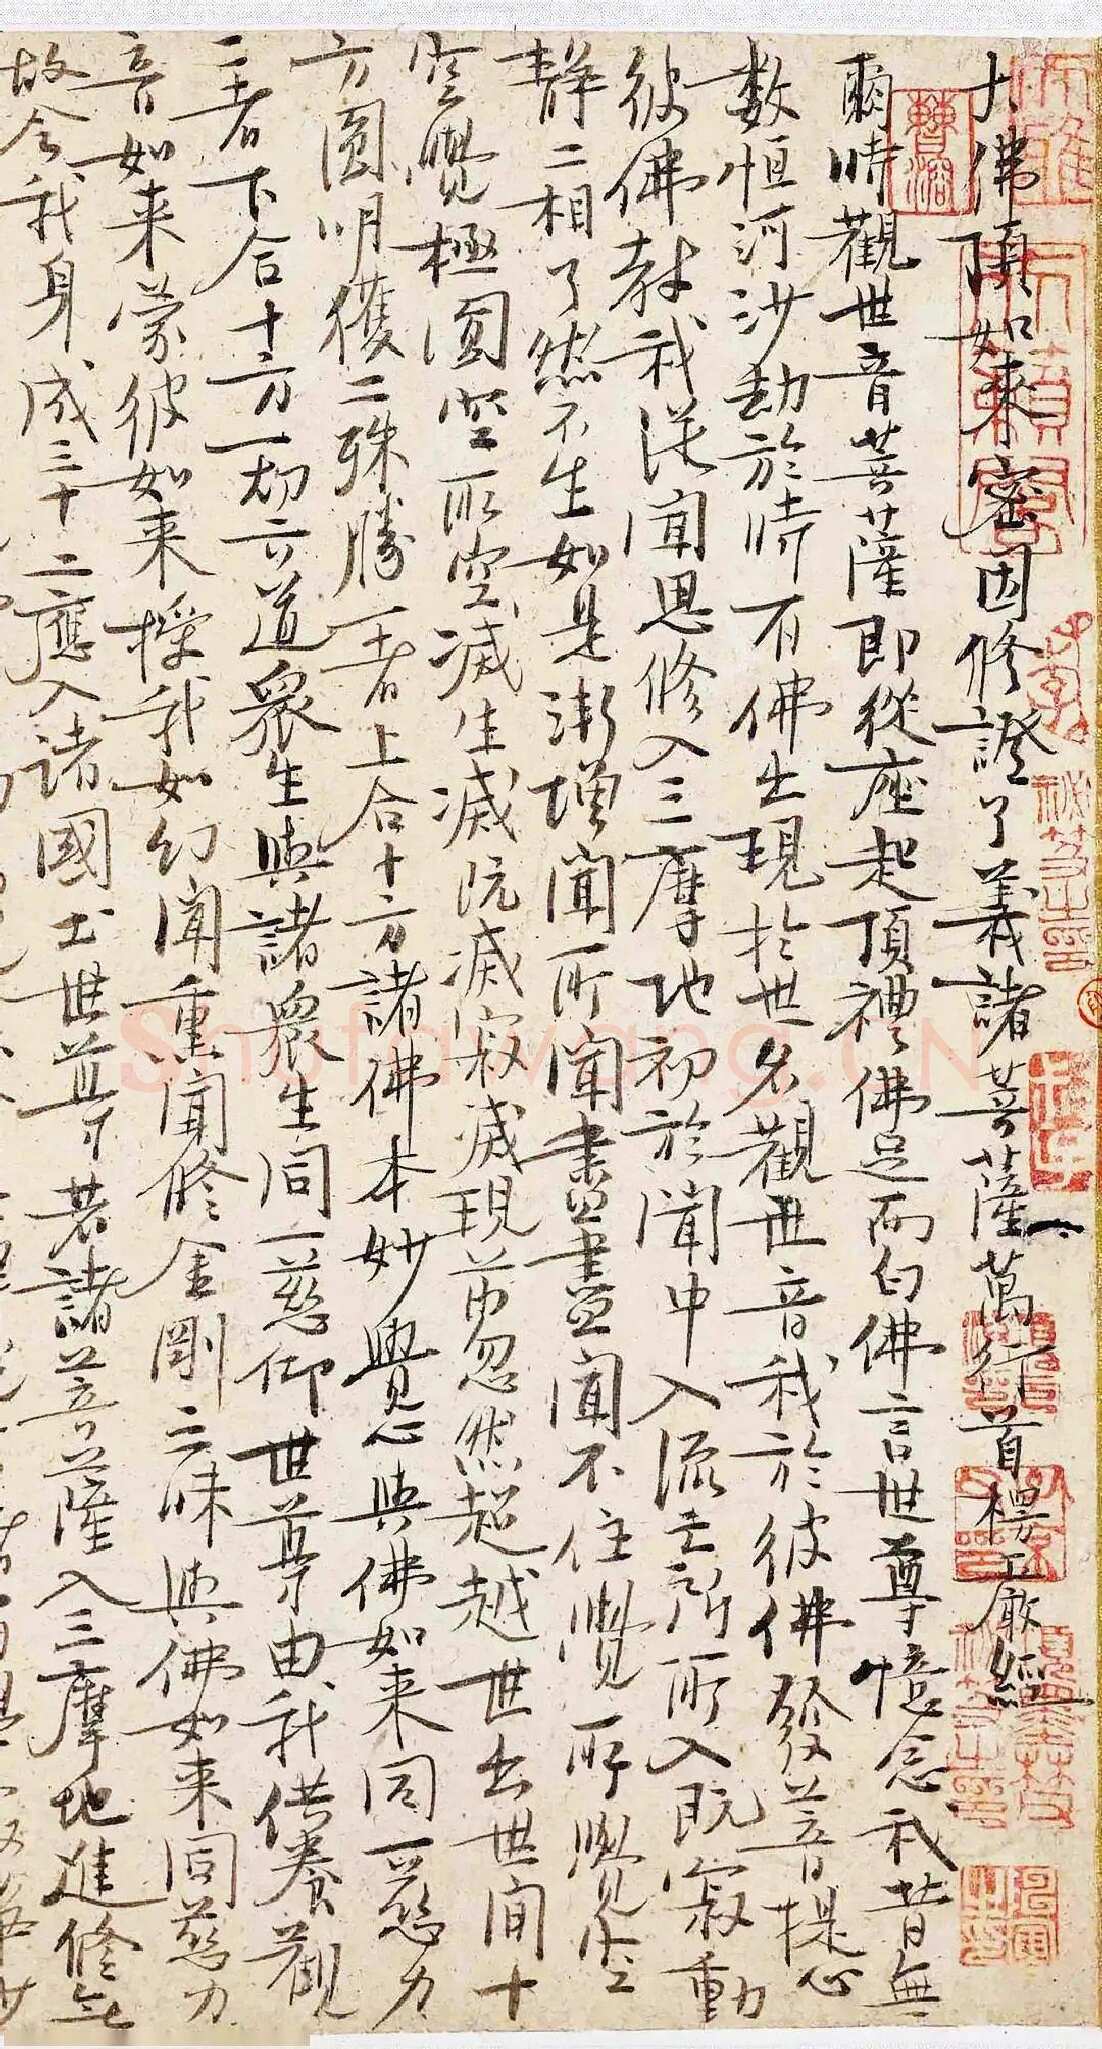 大佛頂如來密因修證了義諸菩薩萬行首楞嚴經
爾時觀世音菩薩即從座起頂禮佛足而白佛言世尊憶念我昔無
數恒河沙劫於時有佛出現於世名觀世音我於彼佛發菩提心
彼佛教我從聞思修入三摩地初於聞中入流亡所所入既寂動
靜二相了然不生如是漸增聞所聞盡盡聞不住覺所覺空
空覺極圓空所空滅生滅既滅寂滅現前忽然超越世出世間十
方圓明獲二殊勝一者上合十方諸佛本妙覺心與佛如来同一慈力
二者下合十方一切六道衆生與諸衆生同一慈仰世尊由我供養觀
音如来蒙彼如来授我如幻聞熏聞修金剛三昧與佛如来同慈力
故令我身成三十二應入諸國土世尊若諸菩薩入三摩地進修無
Shufawang.CN